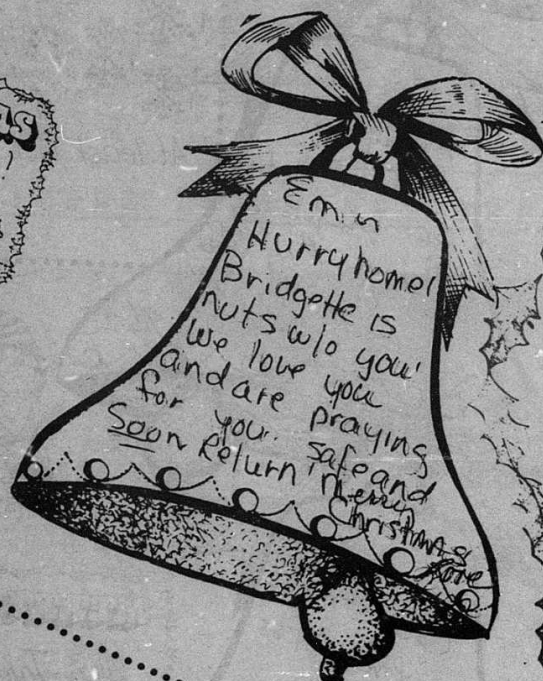 Emin
Hurry home!
Bridgette is
nuts w/o you!
We love you
and are praying
for your safe and
Soon Return!
Merry
Christmas